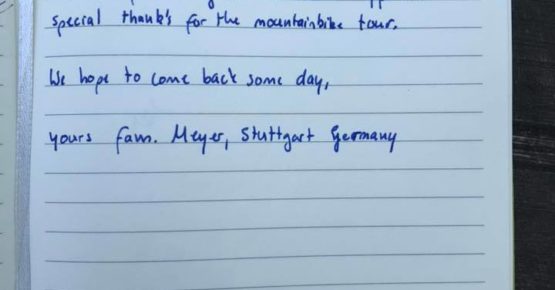 special thank's for the mountainbike tour.
We hope to come back some day,
yours fam. Meyer, Stuttgart Germany